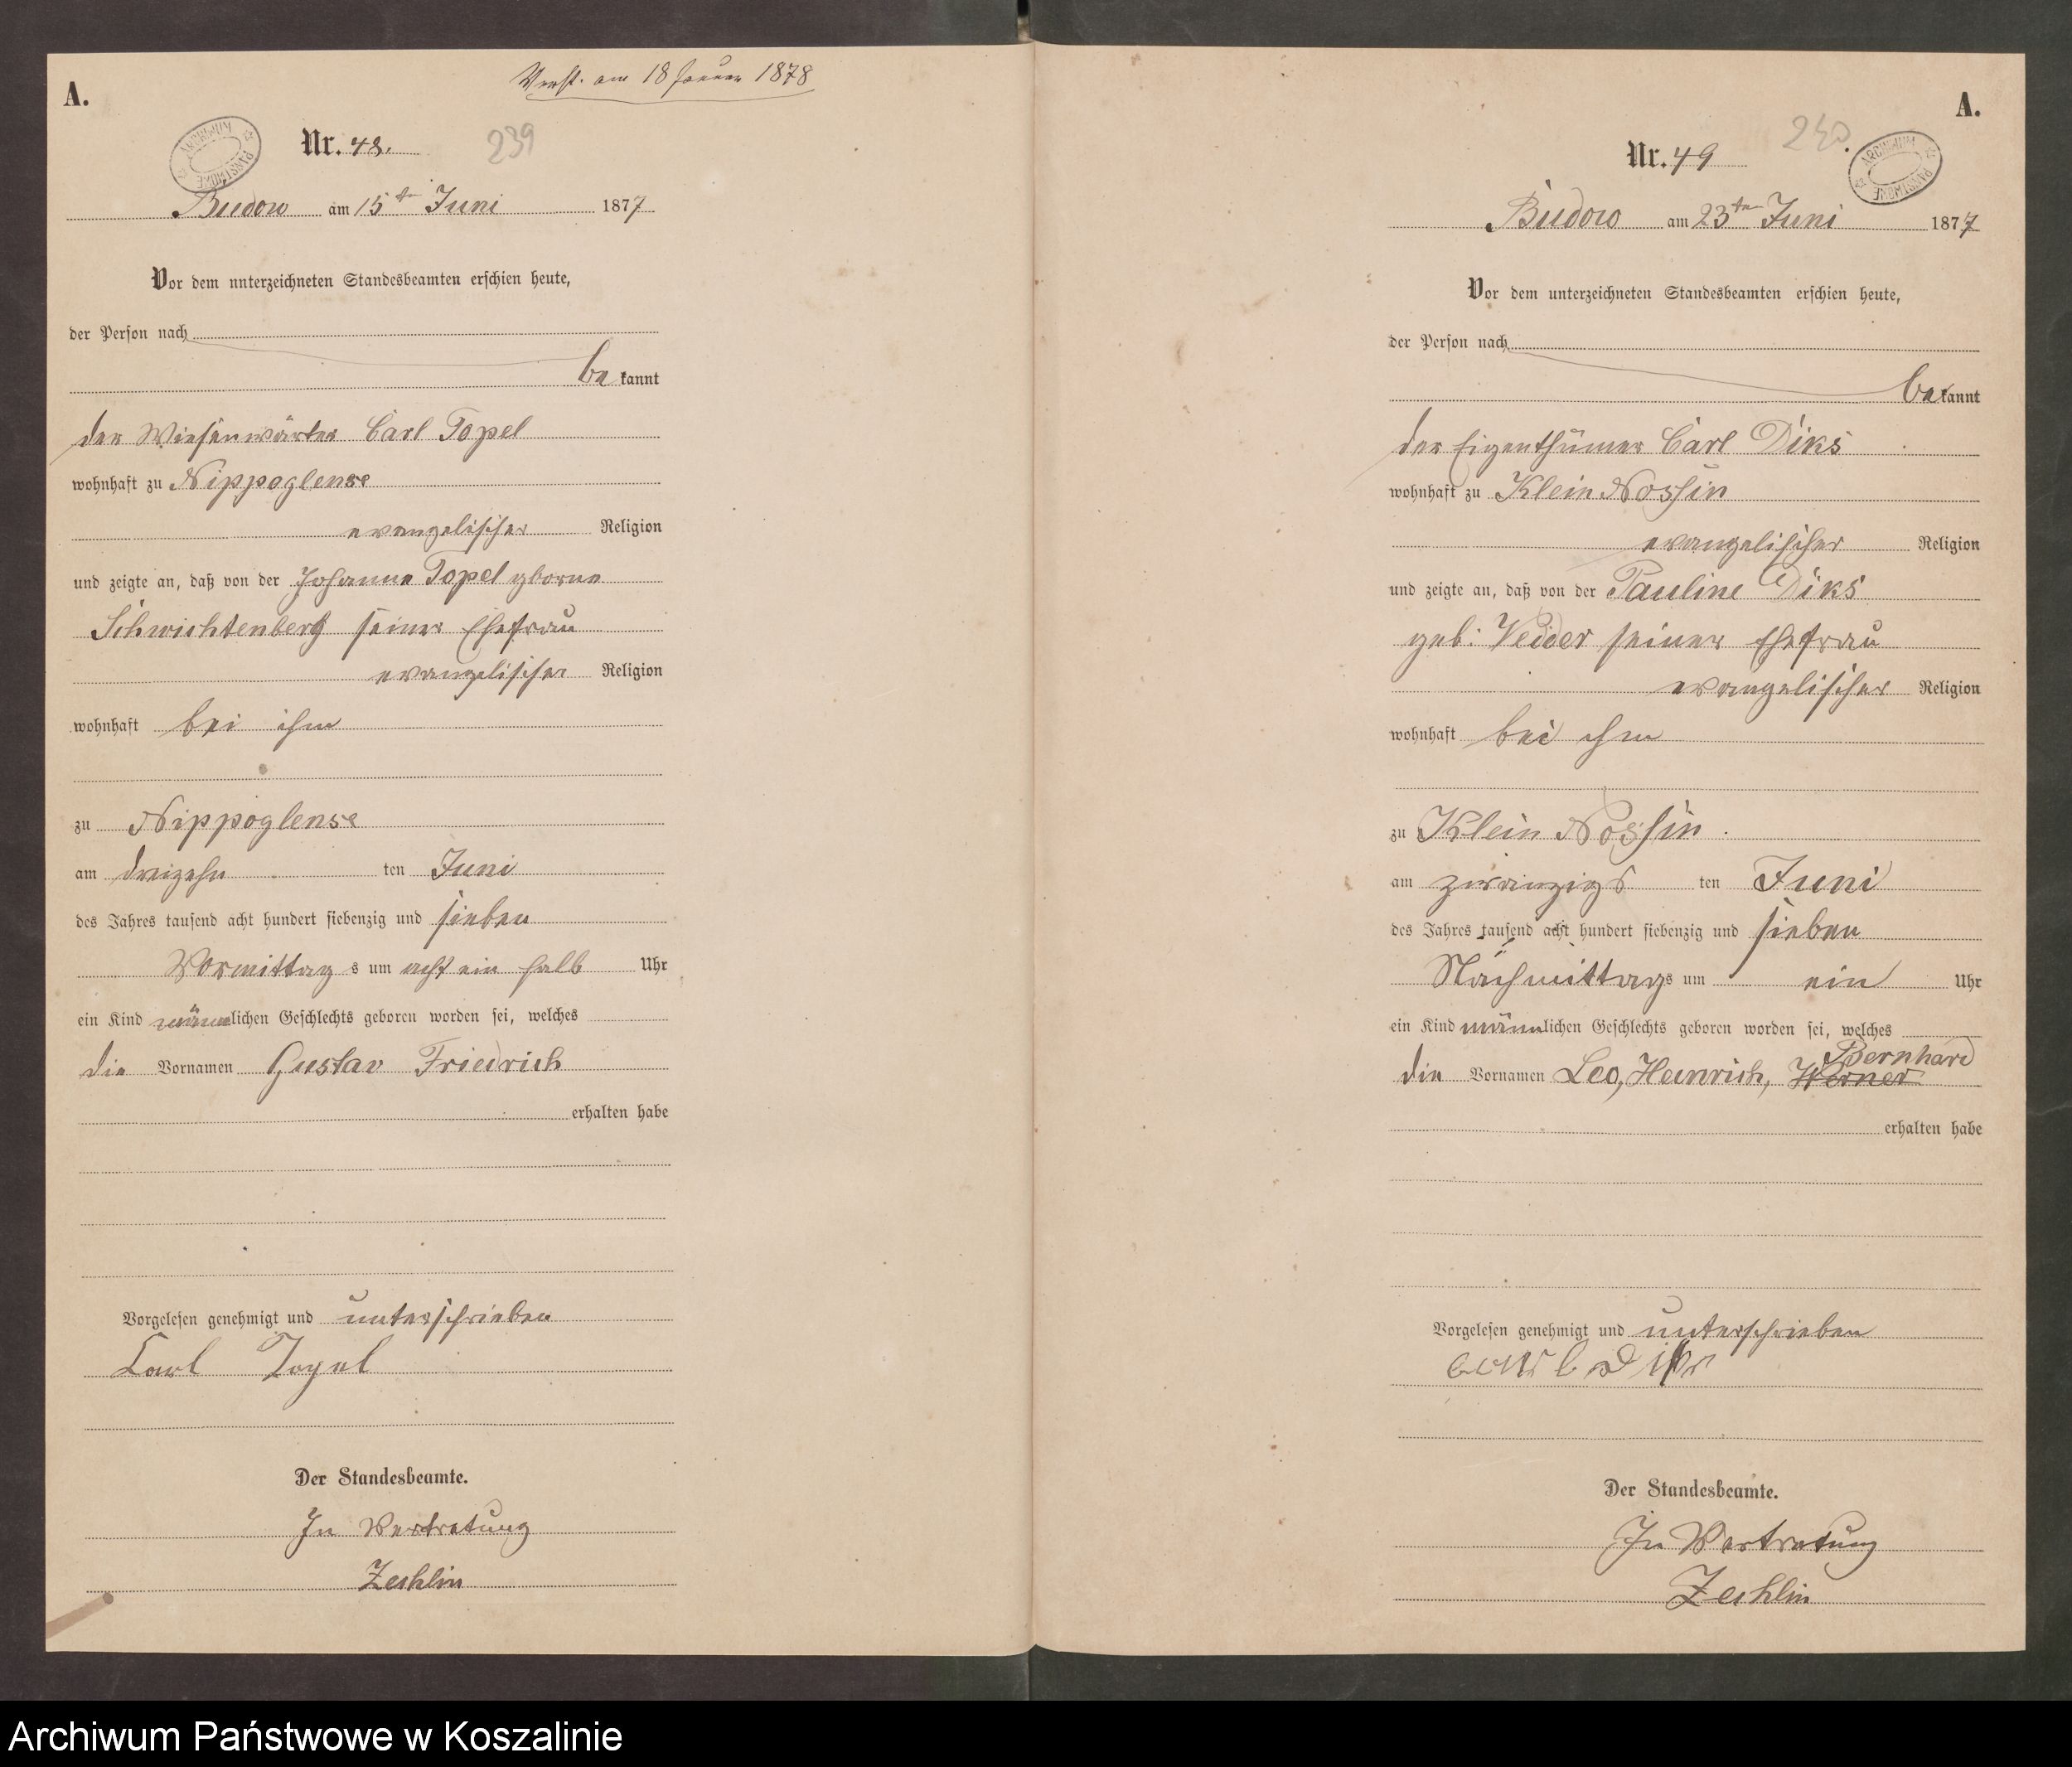 A.
Verst. am 18 Januar 1878
Nr. 48.
239
ARCHIWUM PAŃSTWOWE
Budow am 15ten Juni 1877
Vor dem unterzeichneten Standesbeamten erschien heute,
der Person nach
bekannt
der Wiesenwärter Carl Topel
wohnhaft zu Nippoglense
evangelischer Religion
und zeigte an, daß von der Johanne Topel geborne
Schwichtenberg seiner Ehefrau
evangelischer Religion
wohnhaft bei ihm
zu Nippoglense
am dreizehn ten Juni
des Jahres tausend acht hundert siebenzig und sieben
Vormittags um acht ein halb Uhr
ein Kind männlichen Geschlechts geboren worden sei, welches
die Vornamen Gustav Friedrich
erhalten habe
Vorgelesen genehmigt und unterschrieben
Carl Topel
Der Standesbeamte.
In Vertretung
Zechlin
A.
Nr. 49
240
ARCHIWUM PAŃSTWOWE
Budow am 23ten Juni 1877
Vor dem unterzeichneten Standesbeamten erschien heute,
der Person nach
bekannt
der Eigenthümer Carl Diks
wohnhaft zu Klein Nossin
evangelischer Religion
und zeigte an, daß von der Pauline Diks
geb: Vedder seiner Ehefrau
evangelischer Religion
wohnhaft bei ihm
zu Klein Nossin.
am zwanzigs ten Juni
des Jahres tausend acht hundert siebenzig und sieben
Nachmittags um ein Uhr
ein Kind männlichen Geschlechts geboren worden sei, welches
Bernhard
die Vornamen Leo, Heinrich, Werner
erhalten habe
Vorgelesen genehmigt und unterschrieben
Carl
Der Standesbeamte.
In Vertretung
Zechlin
Archiwum Państwowe w Koszalinie